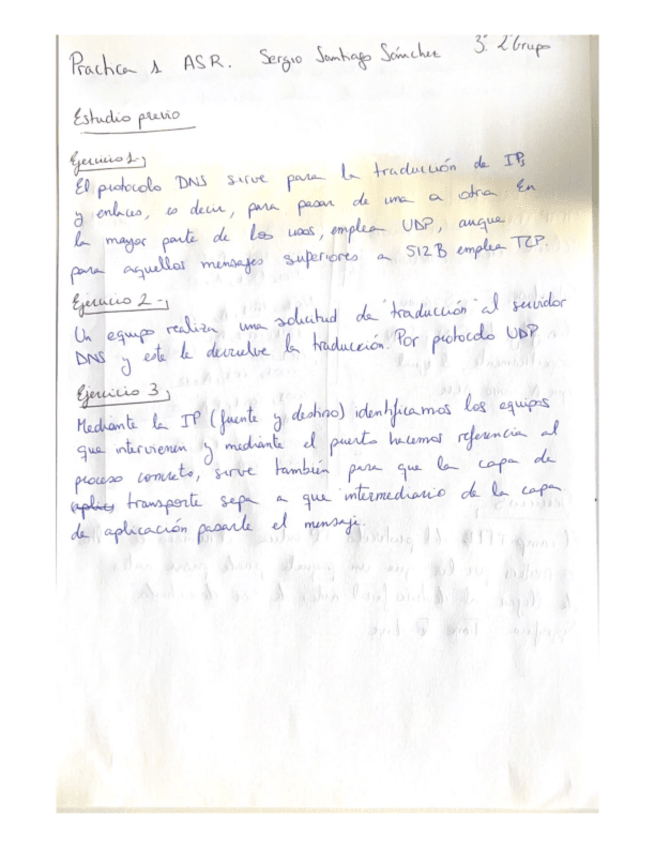 Practica 1 ASR. Sergio Santiago Sánchez 3º 2º Grupo
Estudio previo
Ejercicio 1-;
El protocolo DNS sirve para la traducción de IPs
y enlaces, es decir, para pasar de una a otra. En
la mayor parte de los usos, emplea UDP, auque
para aquellos mensajes superiores a 512 B emplea TCP.
Ejercicio 2-;
Un equipo realiza una solicitud de "traducción" al servidor
DNS y este le devuelve la traducción. Por protocolo UDP
Ejercicio 3;
Mediante la IP (fuente y destino) identificamos los equipos
que intervienen y mediante el puerto hacemos referencia al
proceso concreto, sirve también para que la capa de
transporte sepa a que intermediario de la capa
de aplicación pasarle el mensaje.